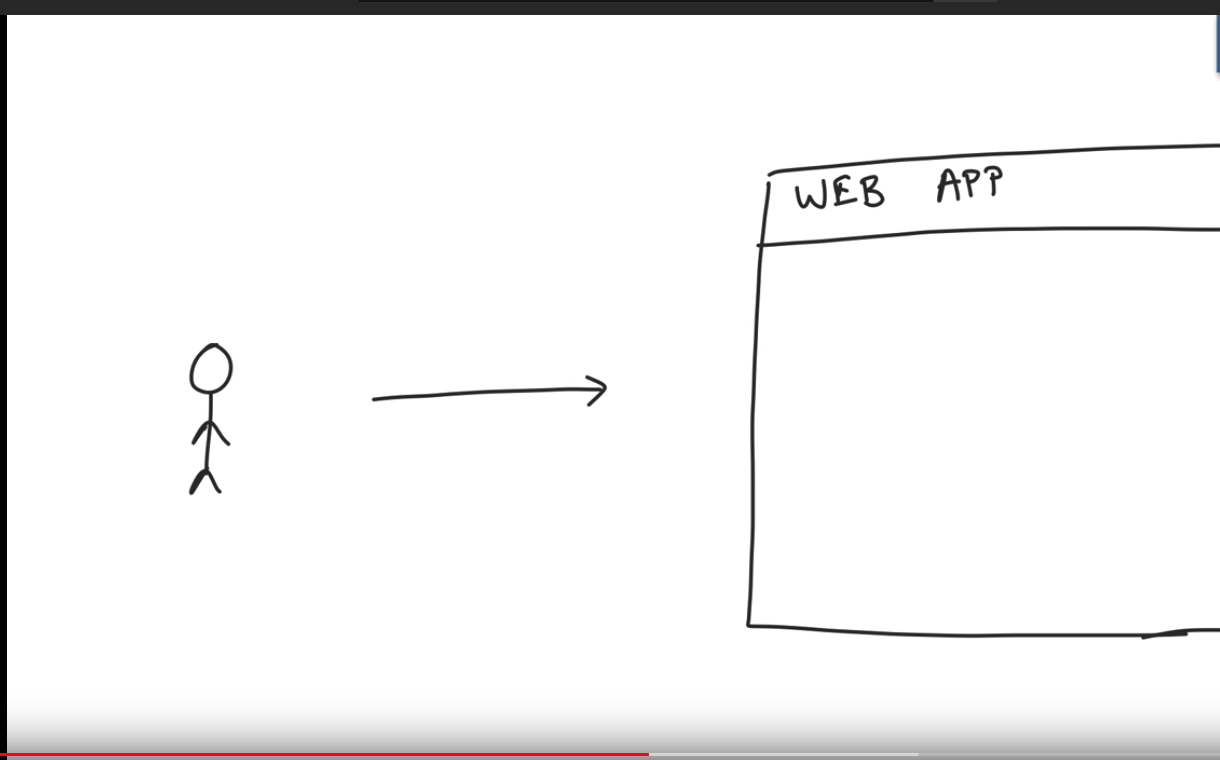 WEB APP